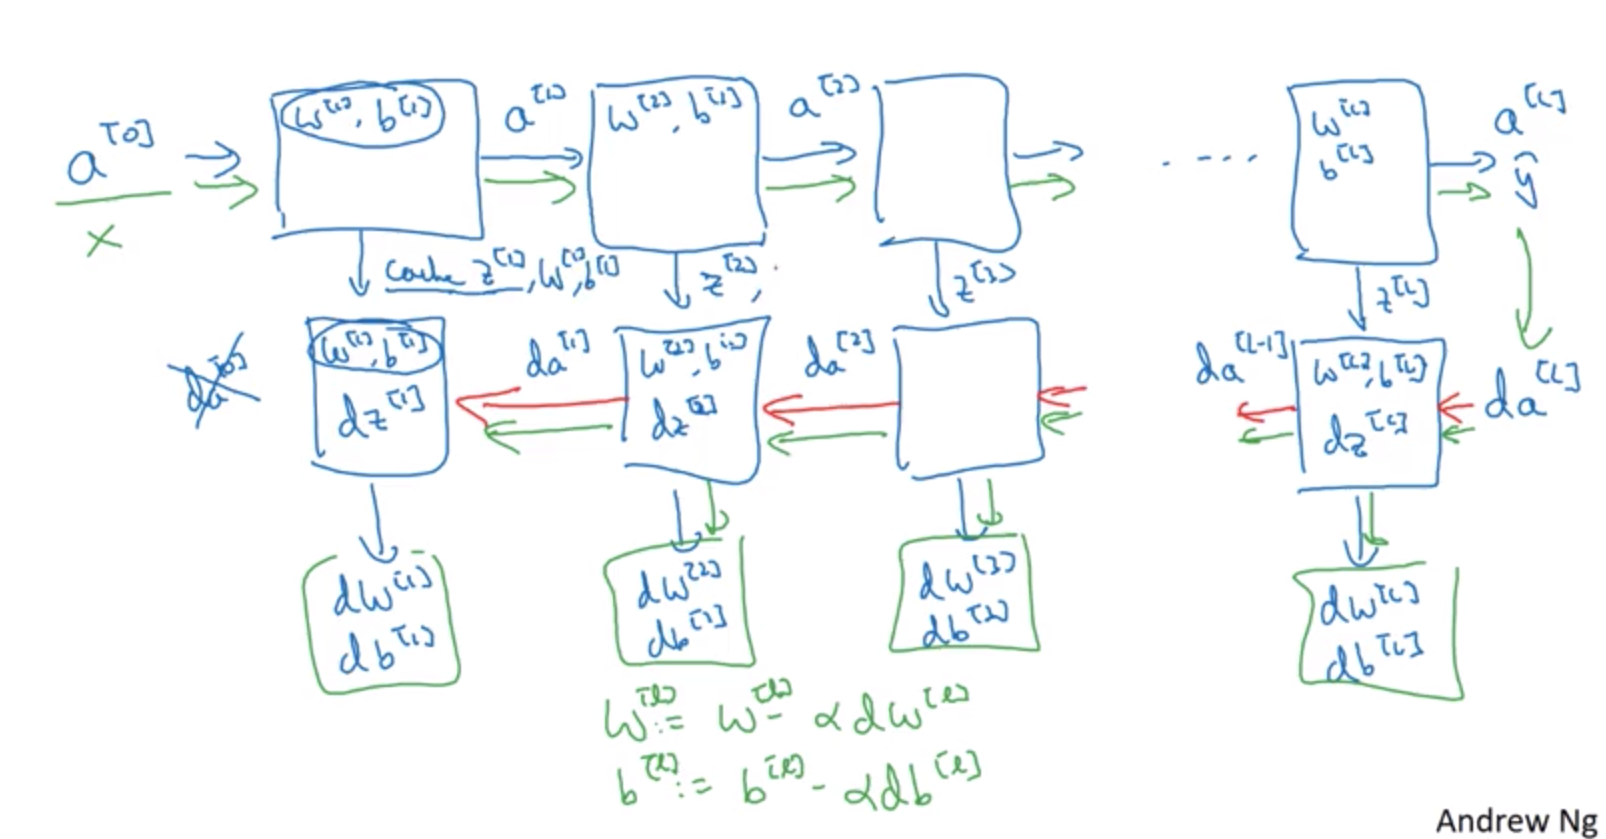 a^[0]
x
w^[1], b^[1]
a^[1]
w^[2], b^[1]
a^[2]
....
w^[L]
b^[L]
a^[L]
ŷ
cache z^[1], w^[1], b^[1]
z^[2],
z^[3]
z^[L]
da^[0]
w^[1], b^[1]
dz^[1]
da^[1]
w^[2], b^[2]
dz^[2]
da^[2]
da^[L-1]
w^[L], b^[L]
dz^[L]
da^[L]
dw^[1]
db^[1]
dw^[2]
db^[2]
dw^[3]
db^[3]
dw^[L]
db^[L]
w^[l] := w^[l] - αdw^[l]
b^[l] := b^[l] - αdb^[l]
Andrew Ng